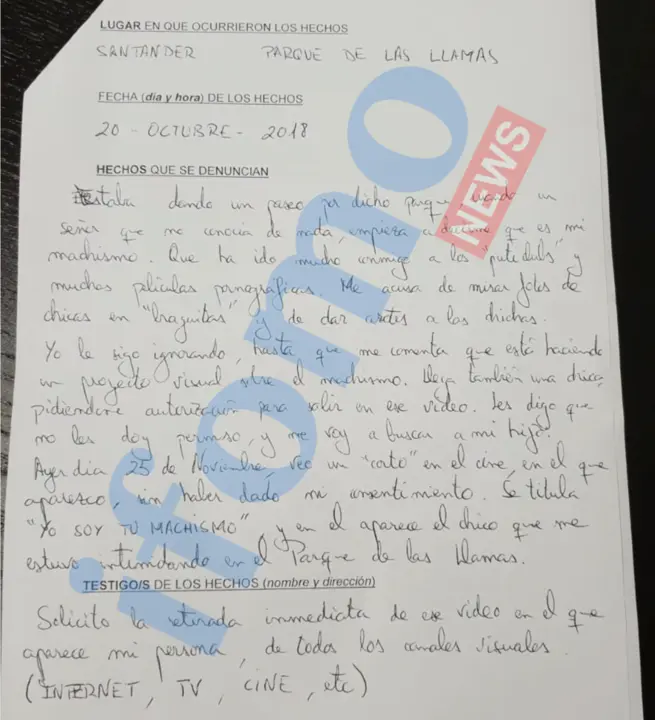 LUGAR EN QUE OCURRIERON LOS HECHOS
SANTANDER PARQUE DE LAS LLAMAS
FECHA (día y hora) DE LOS HECHOS
20 - OCTUBRE - 2018
HECHOS QUE SE DENUNCIAN
Estaba dando un paseo por dicho parque, cuando un
señor que no conocía de nada, empieza a decirme que es mi
machismo. Que ha ido mucho conmigo a los "puticlubs" y
muchas películas pornográficas. Me acusa de mirar fotos de
chicas en "braguitas" y de dar azotes a las chichas.
Yo le sigo ignorando, hasta que me comenta que está haciendo
un proyecto visual sobre el machismo. Llega también una chica,
pidiendome autorización para salir en ese video. Les digo que
no les doy permiso, y me voy a buscar a mi hijo.
Ayer dia 25 de Noviembre, veo un "corto" en el cine, en el que
aparesco, sin haber dado mi consentimiento. Se titula
"YO SOY TU MACHISMO" y en el aparece el chico que me
estuvo intimidando en el Parque de las Llamas.
TESTIGO/S DE LOS HECHOS (nombre y dirección)
Solicito la retirada inmediata de ese video en el que
aparece mi persona, de todos los canales visuales.
(INTERNET, TV, CINE, etc)
ifomo
NEWS